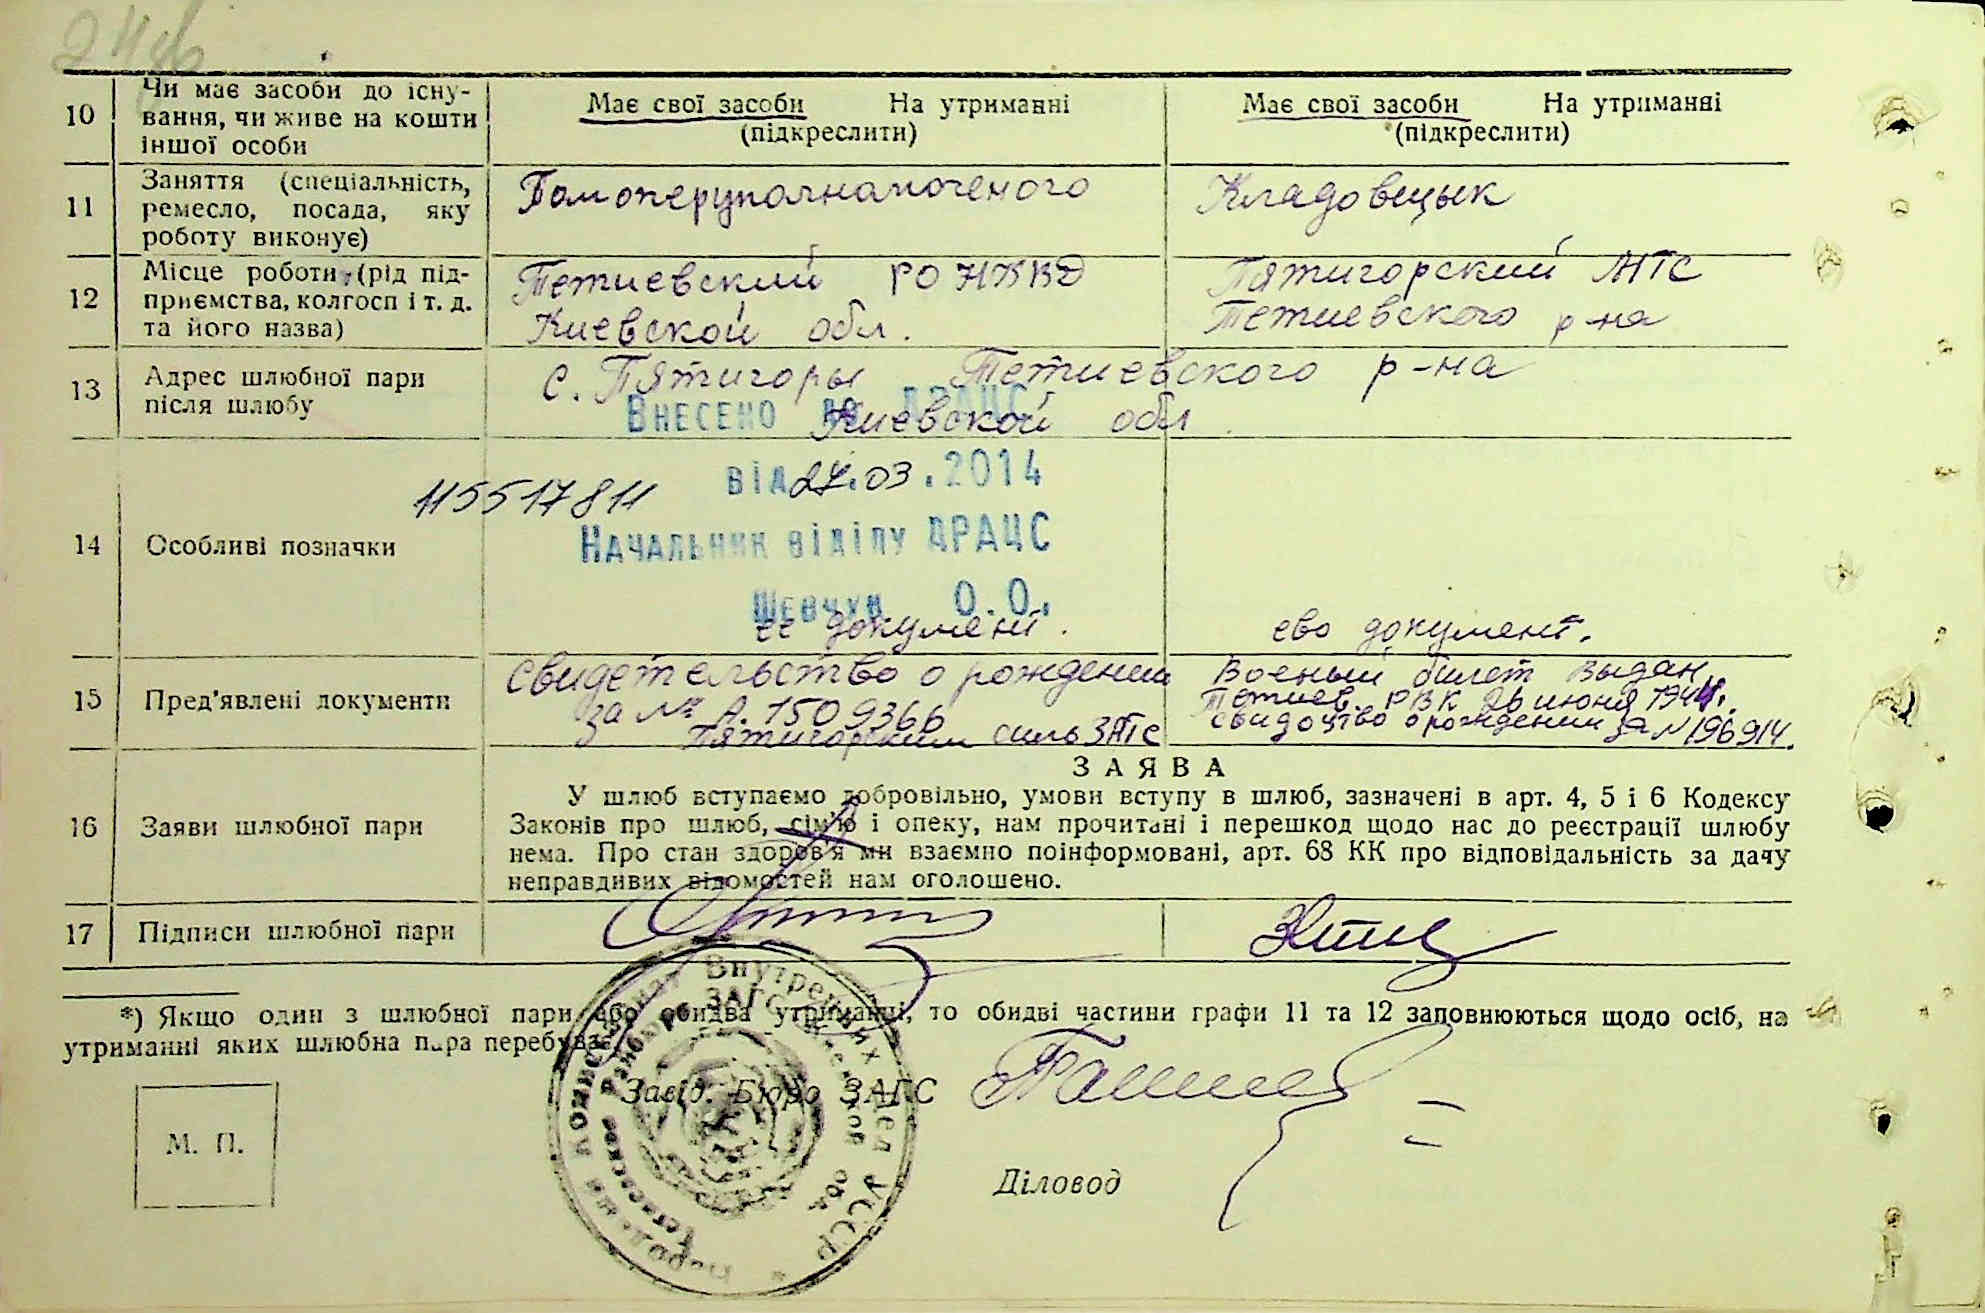 10
Чи має засоби до існу-
вання, чи живе на кошти
іншої особи
Має свої засоби На утриманні
(підкреслити)
Має свої засоби На утриманні
(підкреслити)
11
Заняття (спеціальність,
ремесло, посада, яку
роботу виконує)
Помоперуполнамоченого
Кладовецык
12
Місце роботи (рід під-
приємства, колгосп і т. д.
та його назва)
Тетиевский РО НКВД
Киевской обл.
Пятигорский МТС
Тетиевского р-на
13
Адрес шлюбної пари
після шлюбу
с. Пятигоры Тетиевского р-на
Киевской обл
Внесено до ДРАЦС
від 27.03.2014
Начальник відділу ДРАЦС
Шевчук О.О.
14
Особливі позначки
115517811
ее документ.
ево документ.
15
Пред'явлені документи
Свидетельство о рождении
за № А. 1509366
Пятигорским сильЗАГС
Военый билет выдан
Тетиев. РВК 26 июня 1944г.
свидоцтво о рождении за №196914.
16
Заяви шлюбної пари
ЗАЯВА
У шлюб вступаємо добровільно, умови вступу в шлюб, зазначені в арт. 4, 5 і 6 Кодексу
Законів про шлюб, сім'ю і опеку, нам прочитані і перешкод щодо нас до реєстрації шлюбу
нема. Про стан здоров'я ми взаємно поінформовані, арт. 68 КК про відповідальність за дачу
неправдивих відомостей нам оголошено.
17
Підписи шлюбної пари
*) Якщо один з шлюбної пари або обидва утриманці, то обидві частини графи 11 та 12 заповнюються щодо осіб, на
утриманні яких шлюбна пара перебуває.
Народный Комиссариат Внутренних Дел УССР
бюро ЗАГС Киевской обл
Завід. Бюро ЗАГС
М. П.
Діловод